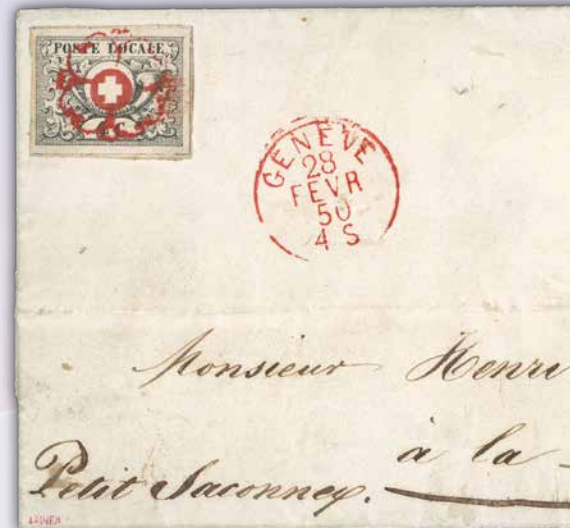 POSTE LOCALE
C
GENÈVE
28
FEVR
50
4 S
Monsieur Henri
à la
Petit Saconnex.